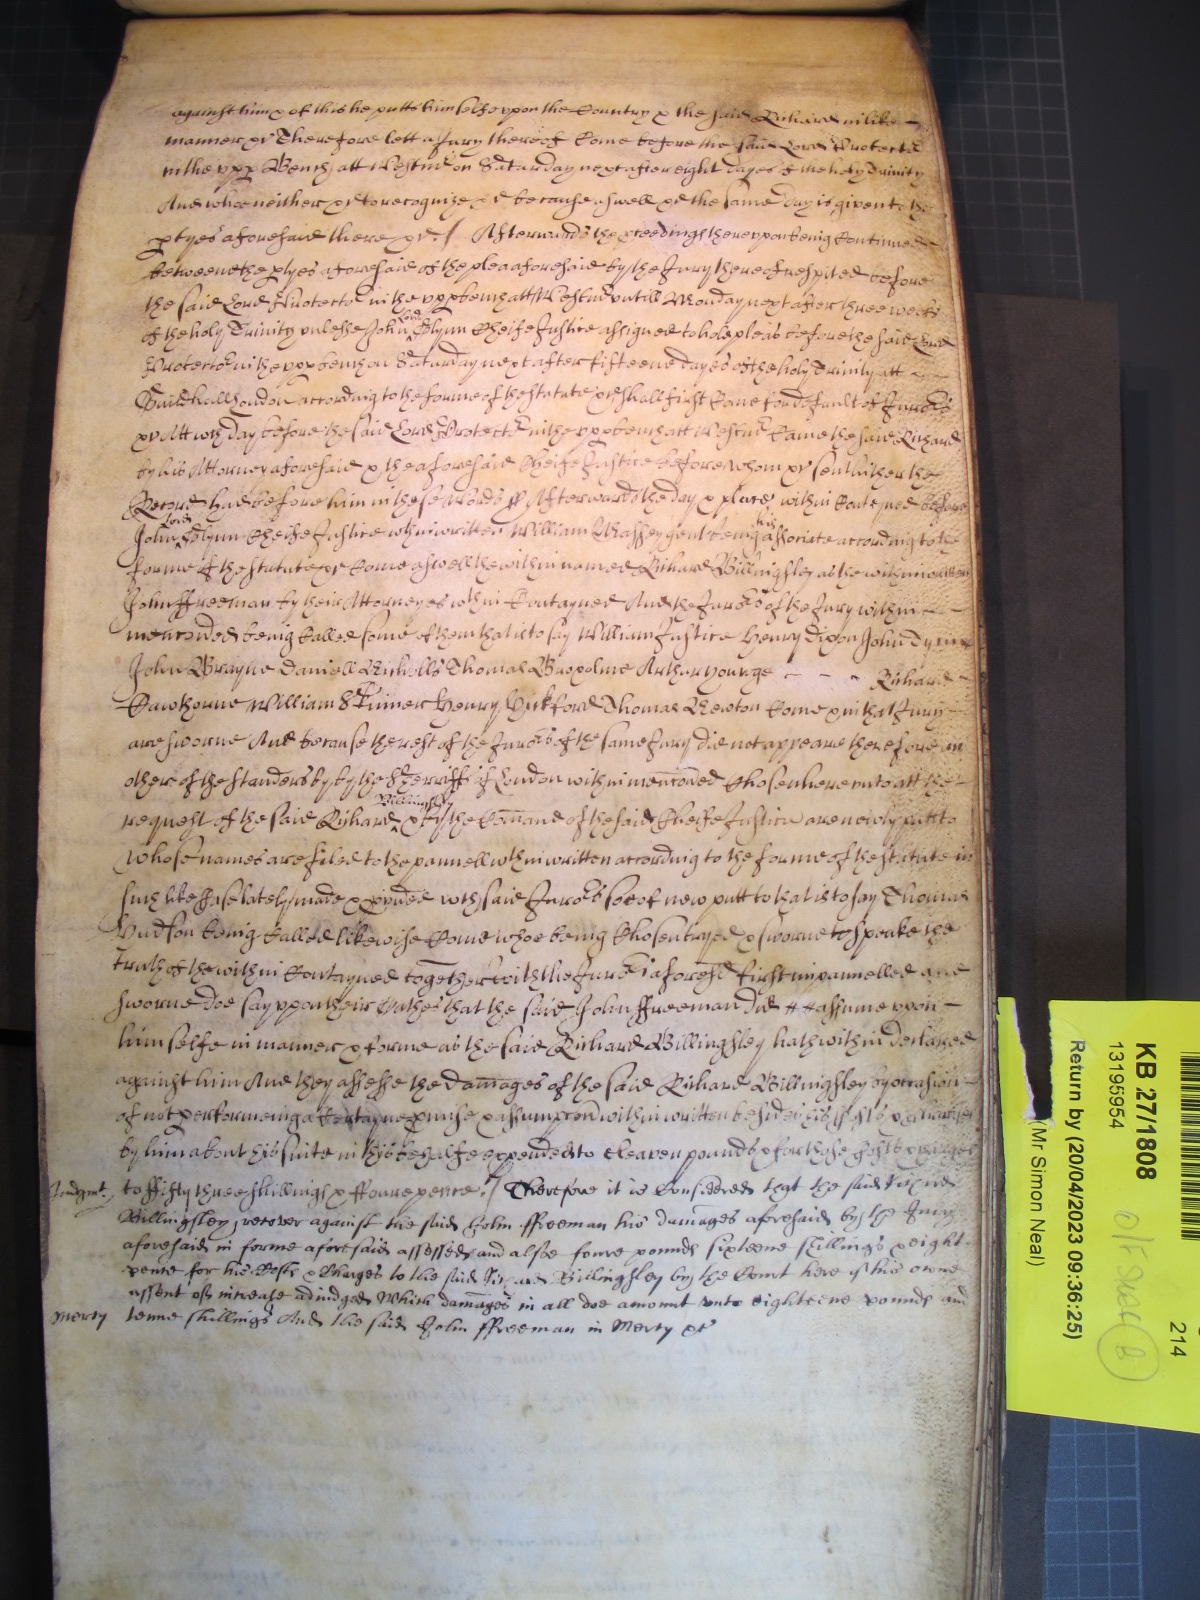 against him & of this he putts himselfe upon the Country & the said Richard in like
manner &c Therefore lett a Jury thereof Come before the said Lord Protector
in the upp Bench att Westmr on Saturday next after eight dayes of the holy Trinity
And whoe neither &c to recognize &c because aswell &c the same day is given to the
ptyes aforesaid there &c / Afterwards the pceedings thereupon being Continued
betweene the ptyes aforesaid of the plea aforesaid by the Jury thereof respited before
the said Lord Protector in the upp bench att Westmr untill Monday next after three weeks
of the holy Trinity unlesse John Lord Glynn Cheife Justice assigned to hold pleas before the said Lord
Protector in the upp bench on Saturday next after fifteene dayes of the holy Trinity att
Guildhall London according to the forme of the statute &c shall first Come for default of Jurors
&c Att wch day before the said Lord Protector in the upp bench att Westmr Came the said Richard
by his Attorney aforesaid & the aforesaid Cheife Justice before whom &c sent hither the
Record had before him in these Words ss Afterwards the day & place within Conteyned before
John Lord Glynn Cheife Justice wthin written William Massey gent being his associate according to the
forme of the statute &c Come aswell the within named Richard Billingsley as the within written
John Freeman by their Attorneyes wthin Contayned And the Jurors of the Jury within
menconed being Called some of them that is to say William Justice Henry Dixon John
John Brayne Daniell Nicholls Thomas Arthur Younge - - - Richard
Hawthorne William Skinner Henry Hickford Thomas Newton Come & in that Jury
are sworne And because the rest of the Jurors of the same Jury did not appeare therefore an
other of the standers by by the Sherriffs of London within menconed Chosen hereunto att the
request of the said Richard Billingsley & by the Comand of the said Cheife Justice are newly putt to
whose names are filed to the pannell wthin written according to the forme of the statute in
such like Case lately made & pvided wch said Jurors soe of new putt to that is to say Thomas
Hudson being Called likewise Come whoe being Chosen tryed & sworne to speake the
truth of the within Contayned together with the Jurors aforesd first impannelled and
sworne doe say upon their Oathes that the said John Freeman did assume upon
himselfe in manner & forme as the said Richard Billingsley hath within declared
against him And they assesse the damages of the said Richard Billingsley by occasion
of not performeing a Certayne pmise & assumpcon within written besides his Costs & Charges
by him about his suite in this behalfe expended to eleaven pounds & for those Costs & Charges
to fifty three shillings & foure pence / Therefore it is Considered that the said Richard
Judgmt.
Billingsley recover against the said John Freeman his damages aforesaid by the Jury
aforesaid in forme aforesaid assessed and alsoe foure pounds sixteene shillings & eight
pence for his Costs & Charges to the said Richard Billingsley by the Court here of his owne
assent of increase adiudged Which damages in all doe amount unto eighteene pounds and
tenne shillings And the said John Freeman in Mercy &c
Mercy
KB 27/1808
13195954
Return by (20/04/2023 09:36:25)
(Mr Simon Neal)
214